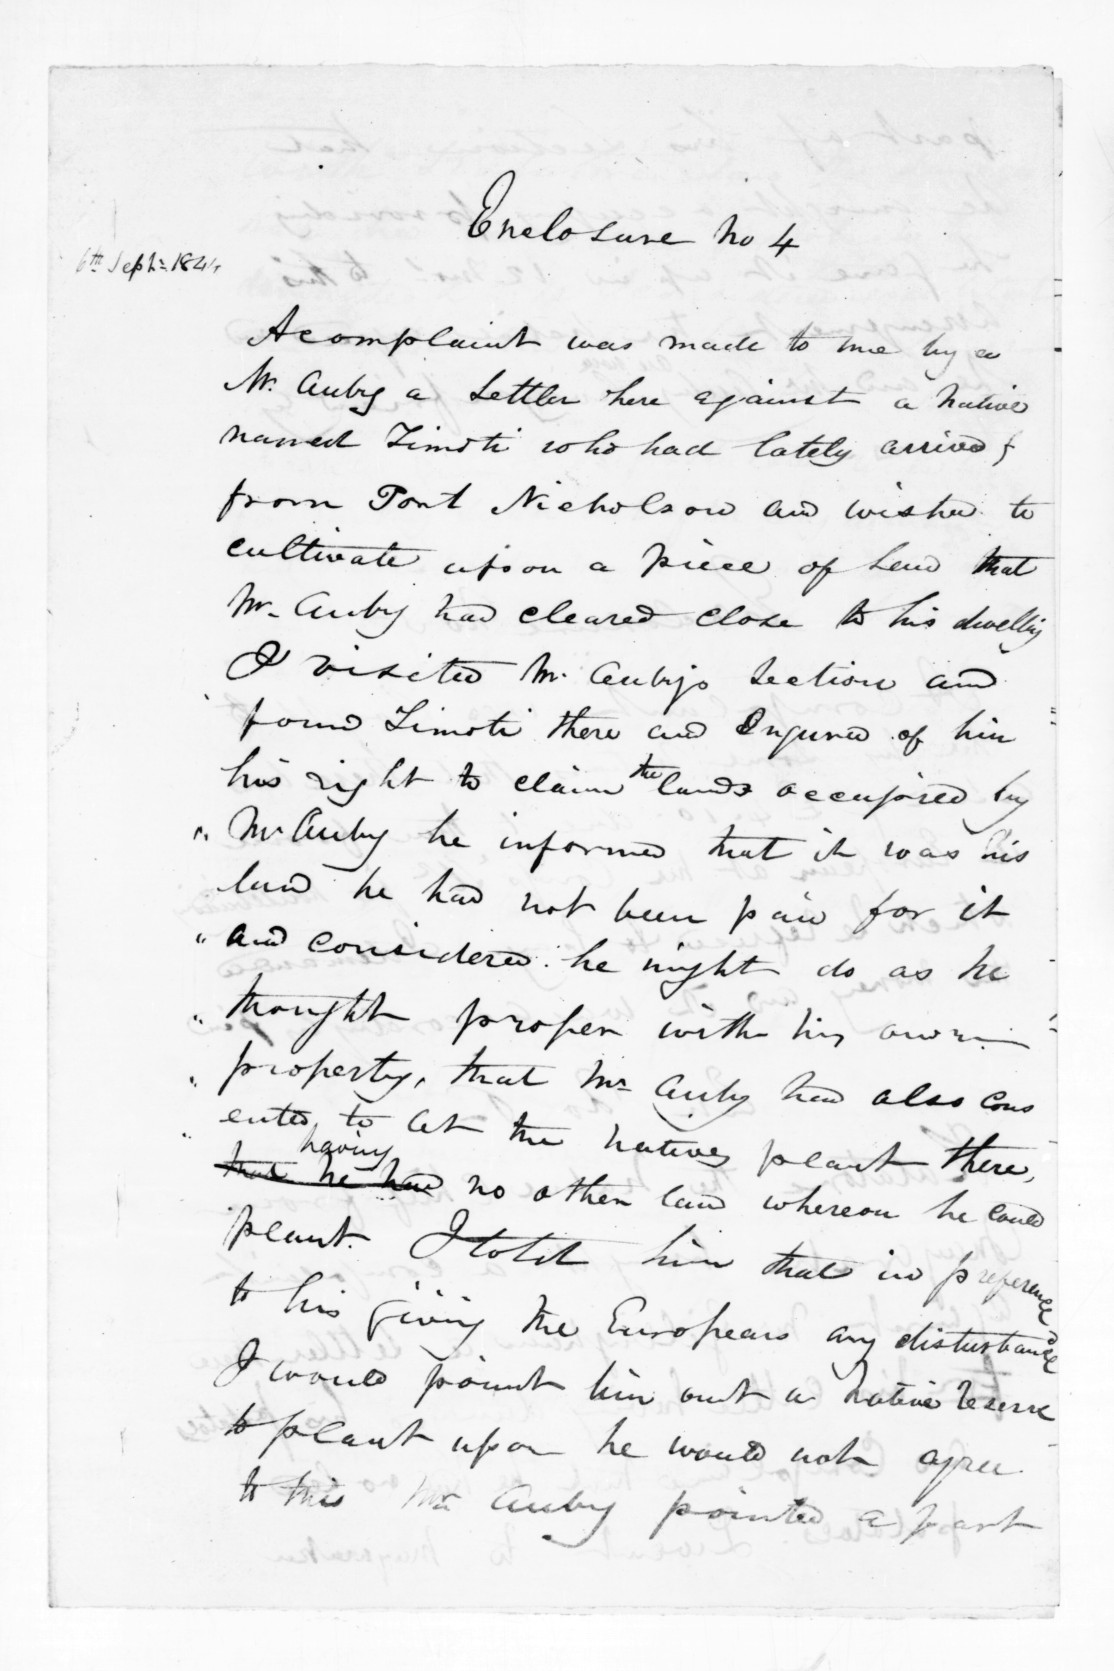 Enclosure No 4
6th Septr 1844
A complaint was made to me by a
Mr. Auby a Settler here against a native
named Timoti who had lately arrived
from Port Nicholson and wished to
cultivate upon a piece of land that
Mr. Auby had cleared close to his dwelling
I visited Mr. Aubys Section and
found Timoti there and Enquired of him
his right to claim the lands occupied by
" Mr Auby he informed that it was his
land he had not been paid for it
" and considered he might do as he
" thought proper with his own
" property, that Mr Auby had also cons
" ented to let the natives plant there,
having
that he had no other land whereon he could
plant. I told him that in preference
to his giving the Europeans any disturbance
I would point him out a native reserve
to plant upon he would not agree
to this Mr Auby pointed a part